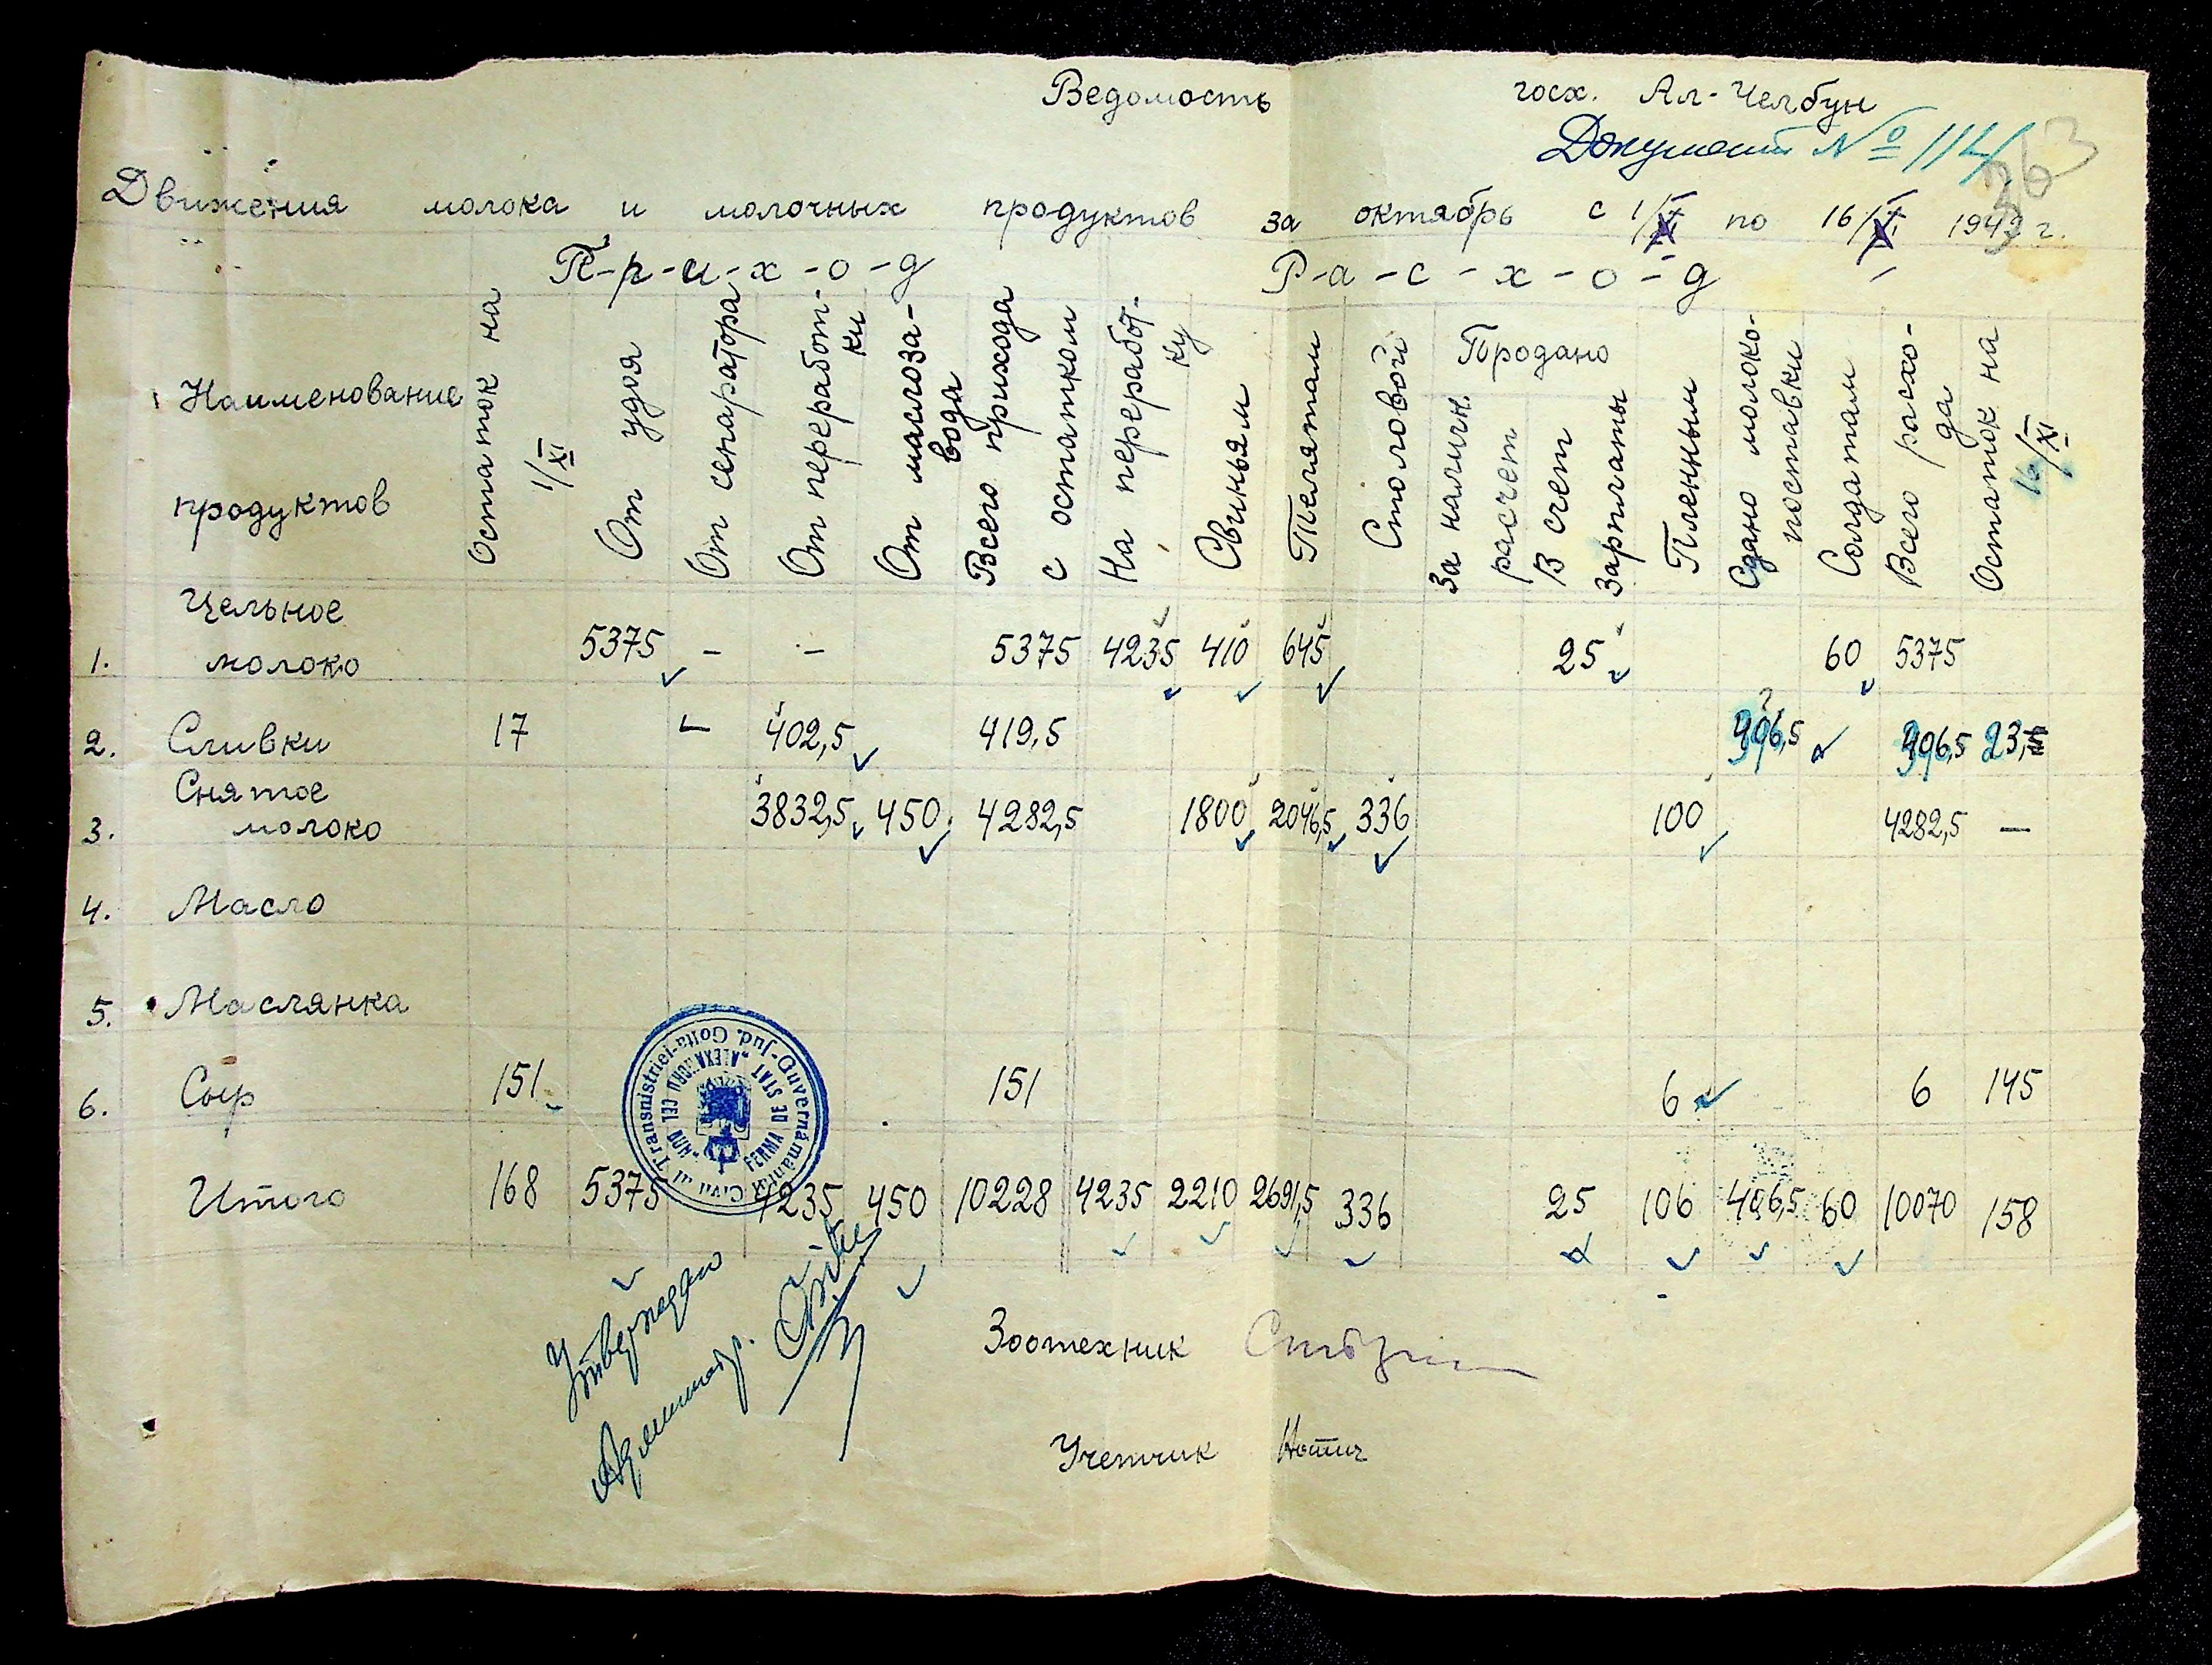 Ведомость госх. Ал-Челбун
Документ № 114
363
Движения молока и молочных продуктов за октябрь с 1/XI по 16/XI 1943 г.
П-р-и-х-о-д Р-а-с-х-о-д
Наименование продуктов
Остаток на 1/XI
От удоя
От сепаратора
От переработ-ки
От маслоза-вода
Всего прихода с остатком
На переработ-ку
Свиньям
Телятам
Столовой
Продано
За наличн. расчет
В счет Зарплаты
Пленным
Сдано молоко-поставки
Солдатам
Всего расхо-да
Остаток на 16/XI
1. Цельное молоко 5375 – – 5375 4235 410 645 25 60 5375
2. Сливки 17 – 402,5 419,5 396,5 396,5 23,
3. Снятое молоко 3832,5 450 4282,5 1800 2046,5 336 100 4282,5 —
4. Масло
5. Маслянка
6. Сыр 151 151 6 6 145
Итого 168 5375 4235 450 10228 4235 2210 2691,5 336 25 106 406,5 60 10070 158
Guvernământul Civil al Transnistriei-Jud. Golta
FERMA DE STAT "ALEXANDRU CEL BUN"
Утверждаю
Администр.
Зоотехник
Учетчик